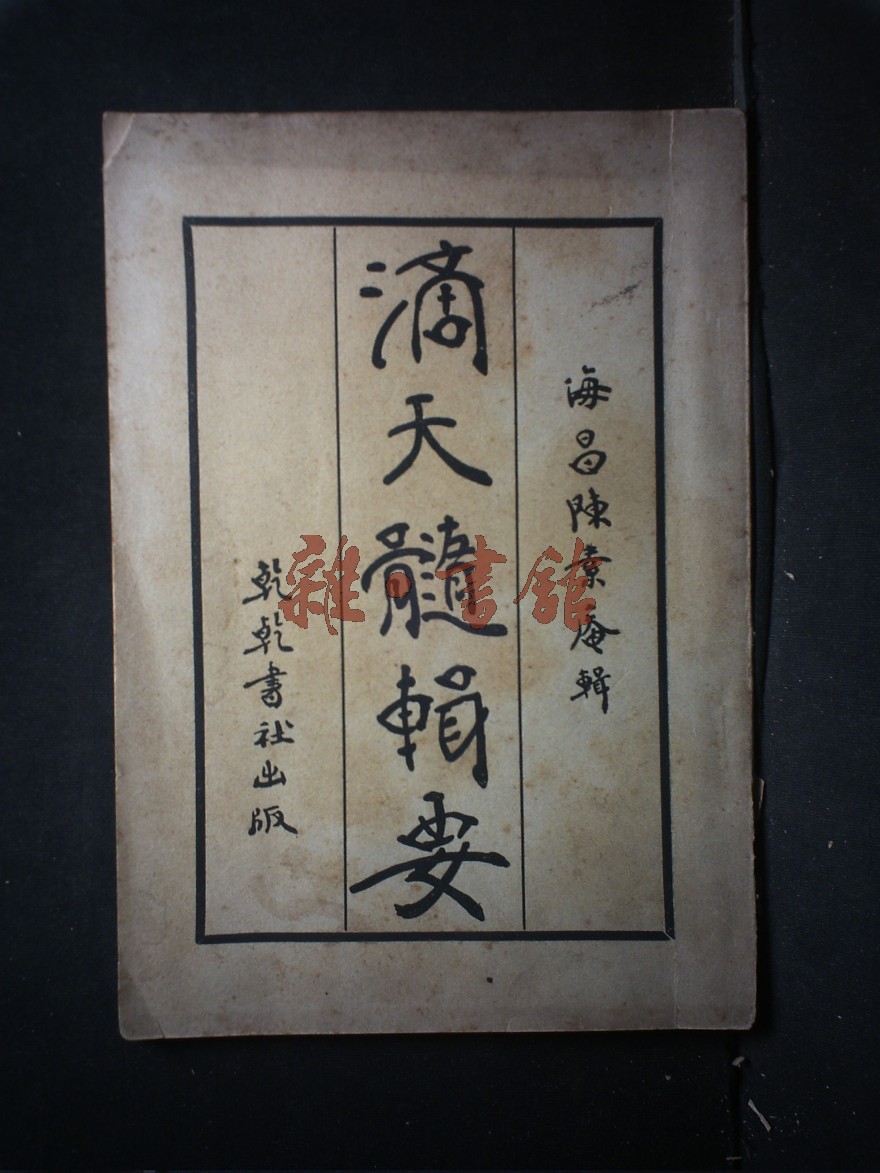 海昌陳素庵輯
滴天髓輯要
乾乾書社出版
雜·書館